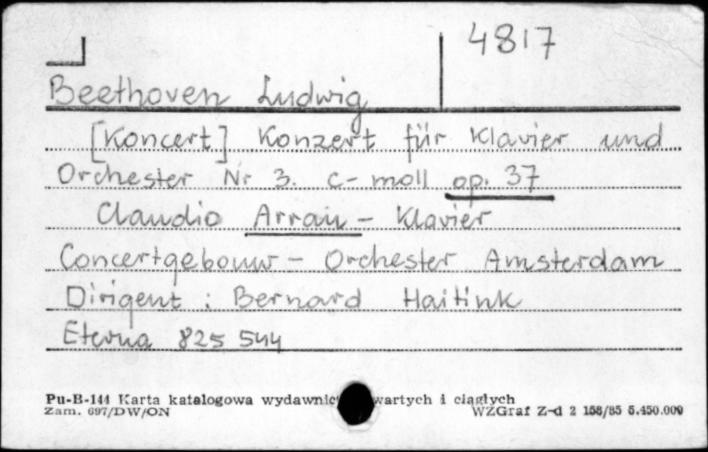 4817
Beethoven Ludwig
[Koncert] Konzert für Klavier und
Orchester Nr 3. c-moll op. 37
Claudio Arrau - Klavier
Concertgebouw - Orchester Amsterdam
Dirigent : Bernard Haitink
Eterna 825 544
Pu-B-144 Karta katalogowa wydawnic wartych i ciągłych
Zam. 697/DW/ON WZGraf Z-d 2 158/85 5.450.000